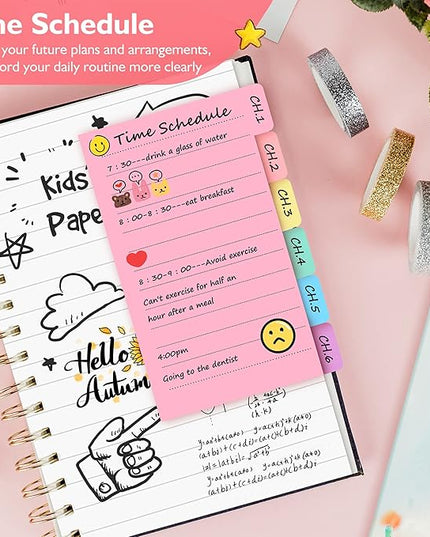 ne Schedule
your future plans and arrangements,
ord your daily routine more clearly
Time Schedule
7:30---drink a glass of water
8:00-8:30---eat breakfast
8:30-9:00---Avoid exercise
Can't exercise for half an
hour after a meal
4:00pm
Going to the dentist
CH.1
CH.2
CH.3
CH.4
CH.5
CH.6
Kids
Pape
Hello
Autum